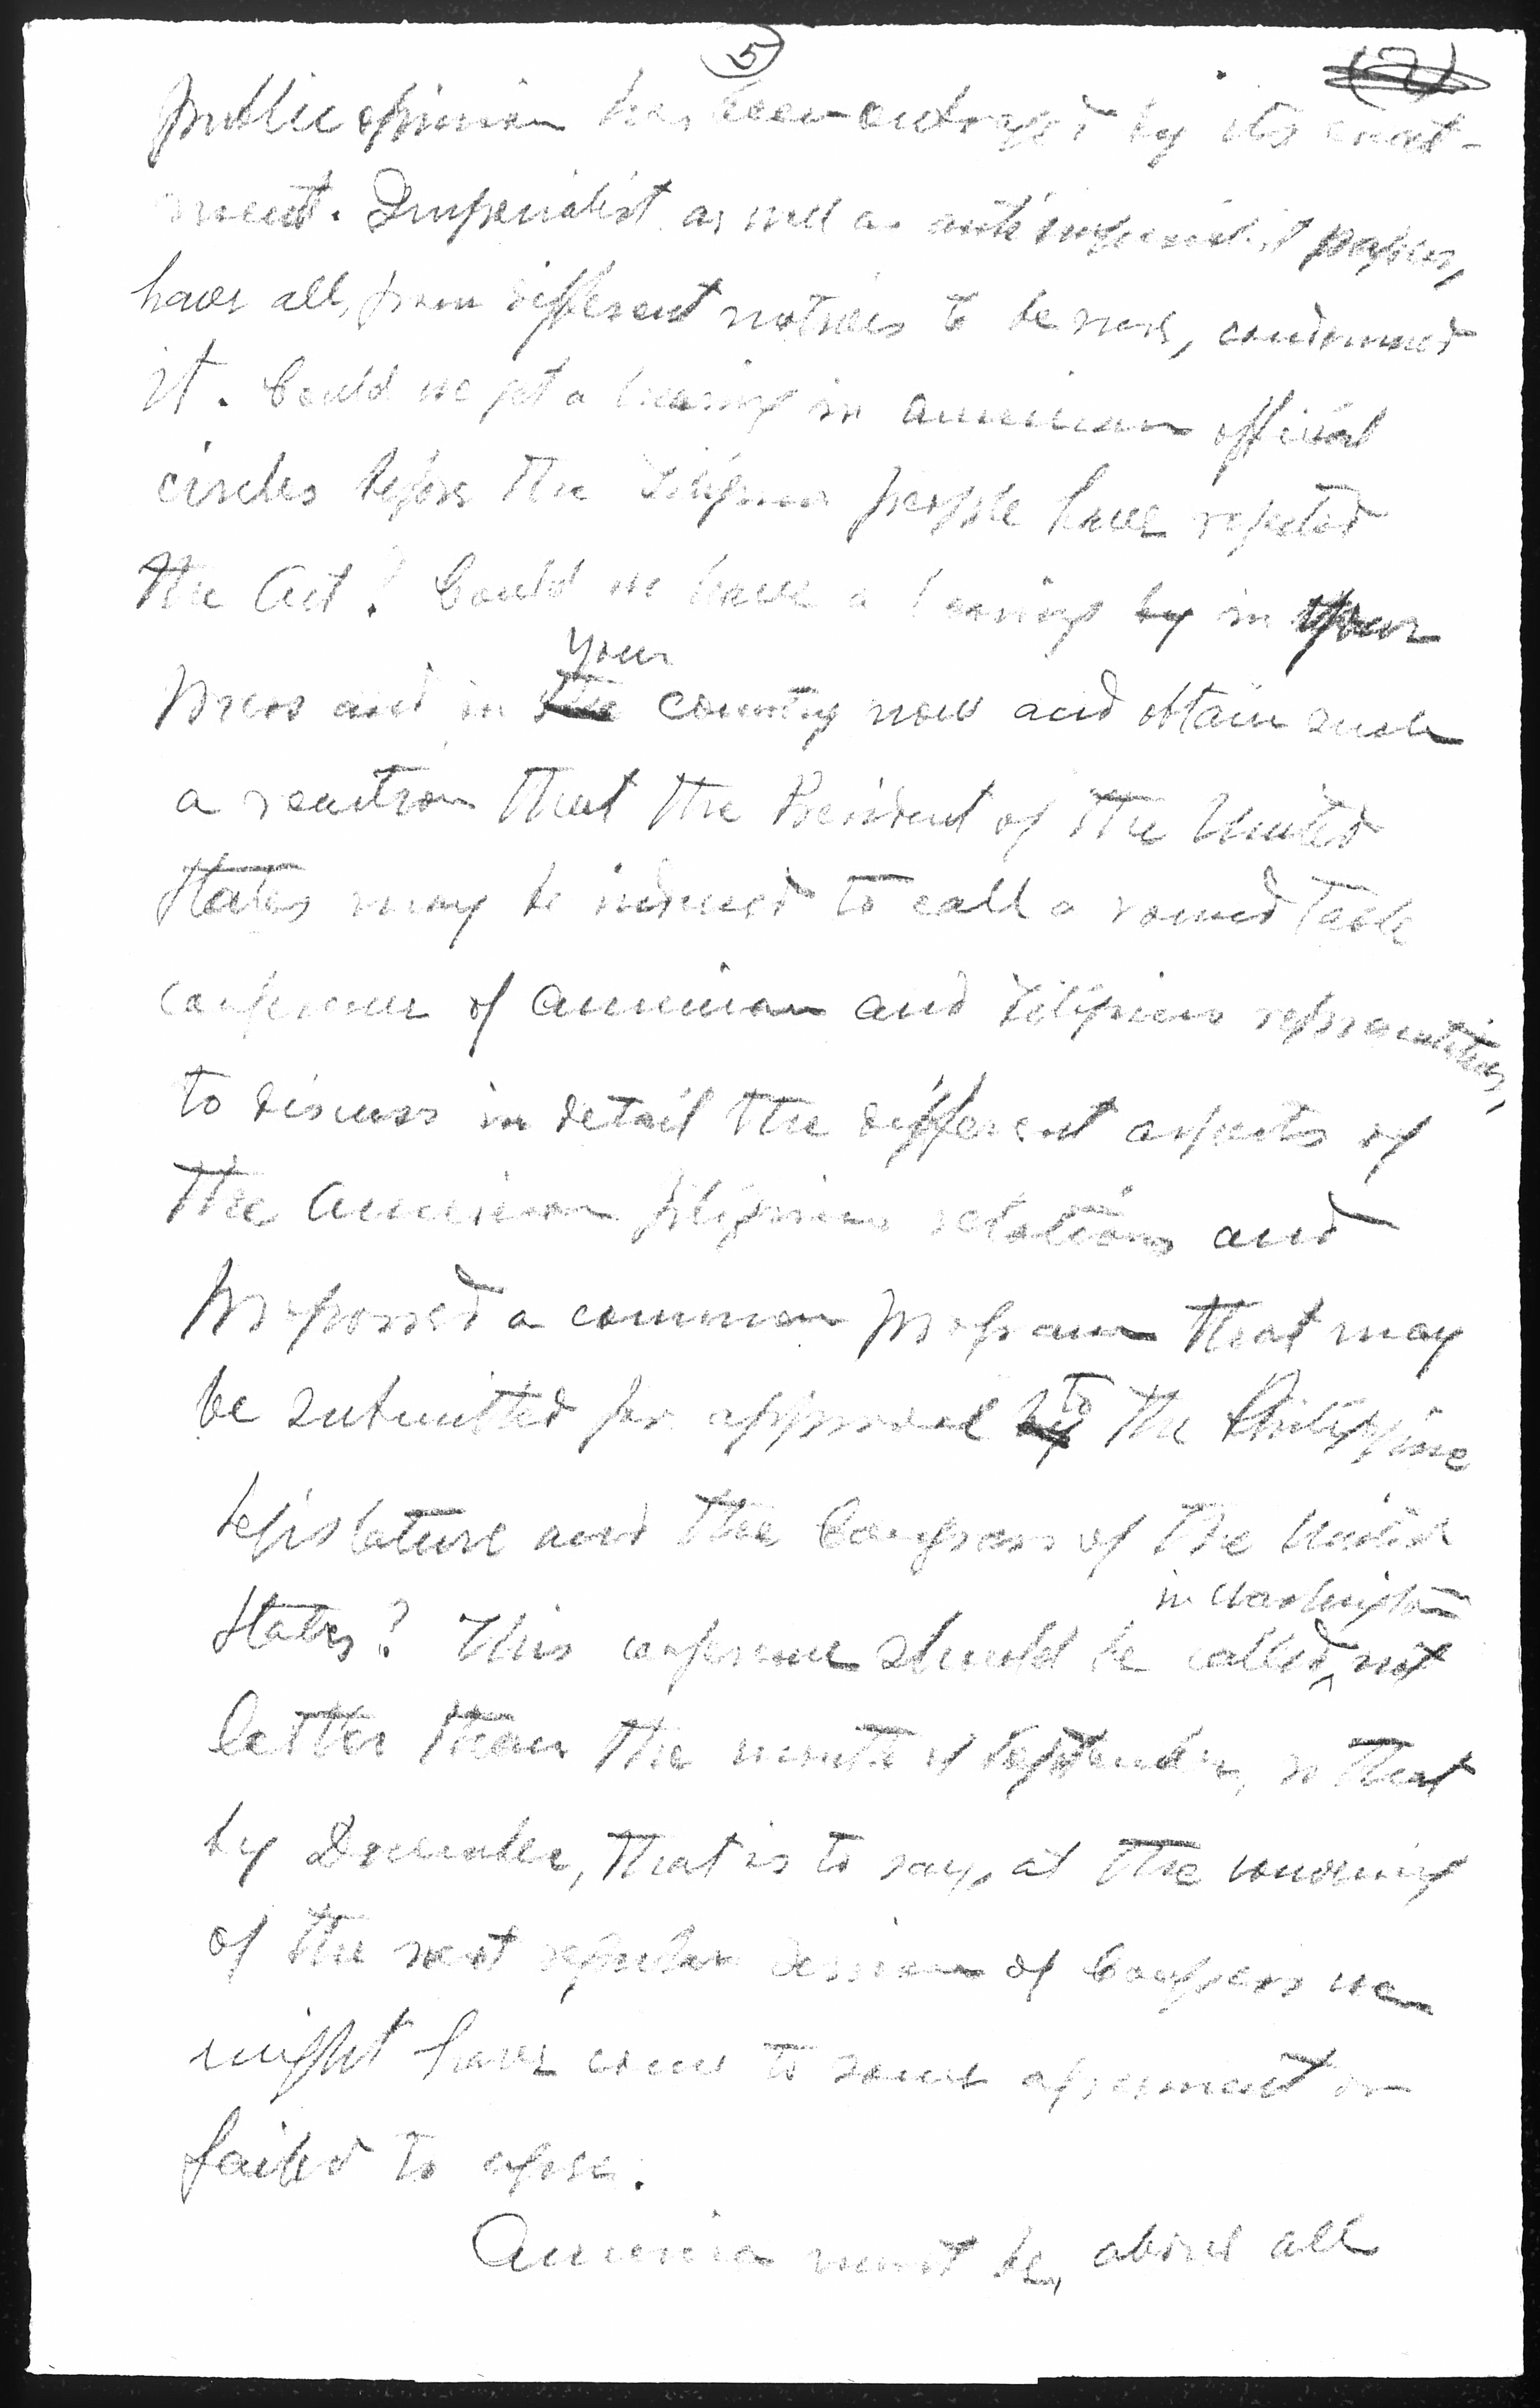 5
(7)
public opinion has been outraged by its enact-
ment. Imperialist as well as anti imperialist papers,
have all, from different motives to be sure, condemned
it. Could we get a hearing in American official
circles before the Filipino people have rejected
the Act? Could we have a hearing by in your
your
press and in the country now and obtain such
a reaction that the President of the United
States may be induced to call a round table
conference of American and Filipino representatives,
to discuss in detail the different aspects of
the American Filipino relations and
proposed a common program that may
be submitted for approval by to the Philippine
Legislature and the Congress of the United
in Washington
States? This conference should be called not
letter than the month of September, so that
by December, that is to say, at the convening
of the next regular session of Congress we
might have come to some agreement or
failed to agree.
America must be, above all